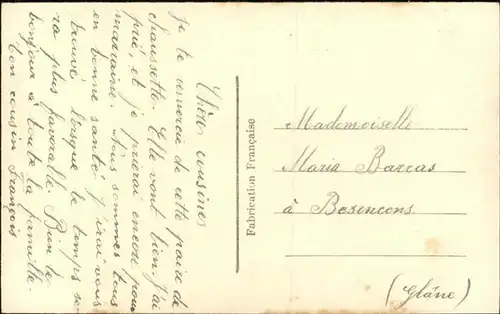 Chères cousines
Je te remercie de cette paire de
chaussette. Elle vont bien. J'ai
prié, et je prierai encore pour
marraine. Nous sommes tous
en bonne santé. J'irai vous
trouvé, lorsque le temps se
ra plus favorable. Bien le
bonjour à toute la famille.
ton cousin François
Fabrication Française
Mademoiselle
Maria Barras
à Besencens.
(Glâne)